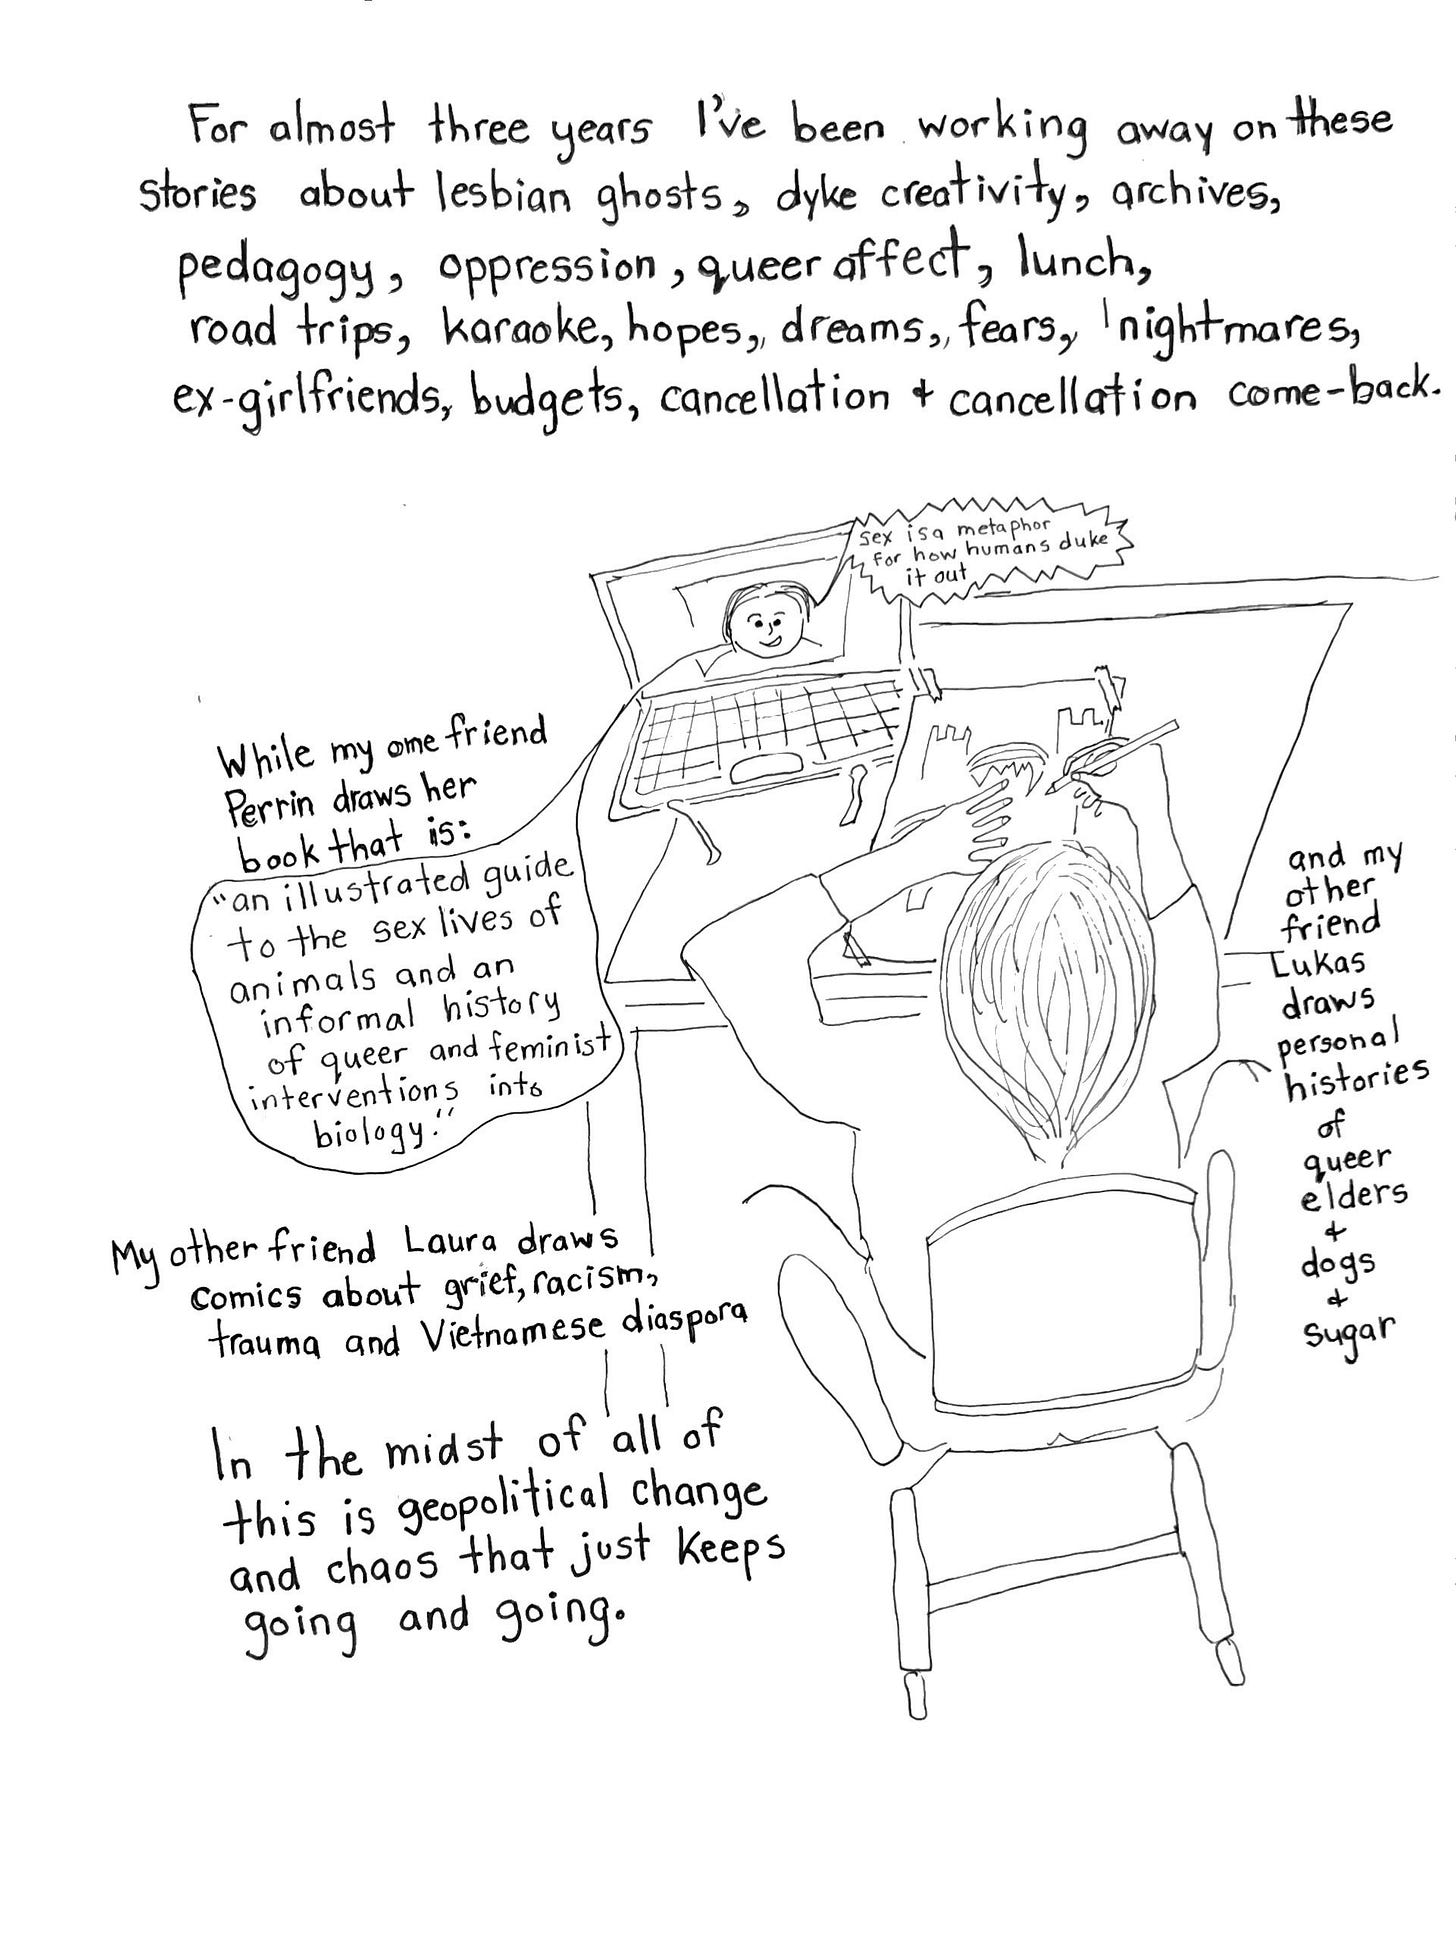 For almost three years I've been working away on these
stories about lesbian ghosts, dyke creativity, archives,
pedagogy, oppression, queer affect, lunch,
road trips, karaoke, hopes, dreams, fears, nightmares,
ex-girlfriends, budgets, cancellation + cancellation come-back.
sex is a metaphor
for how humans duke
it out
While my one friend
Perrin draws her
book that is:
"an illustrated guide
to the sex lives of
animals and an
informal history
of queer and feminist
interventions into
biology."
and my
other
friend
Lukas
draws
personal
histories
of
queer
elders
+
dogs
+
sugar
My other friend Laura draws
comics about grief, racism,
trauma and Vietnamese diaspora
In the midst of all of
this is geopolitical change
and chaos that just keeps
going and going.